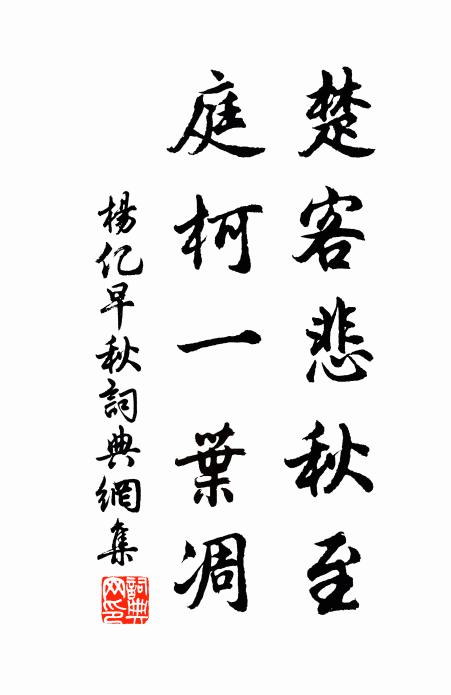 楚客悲秋至
庭柯一葉凋
楊亿早秋詞典網集
詞典
网印